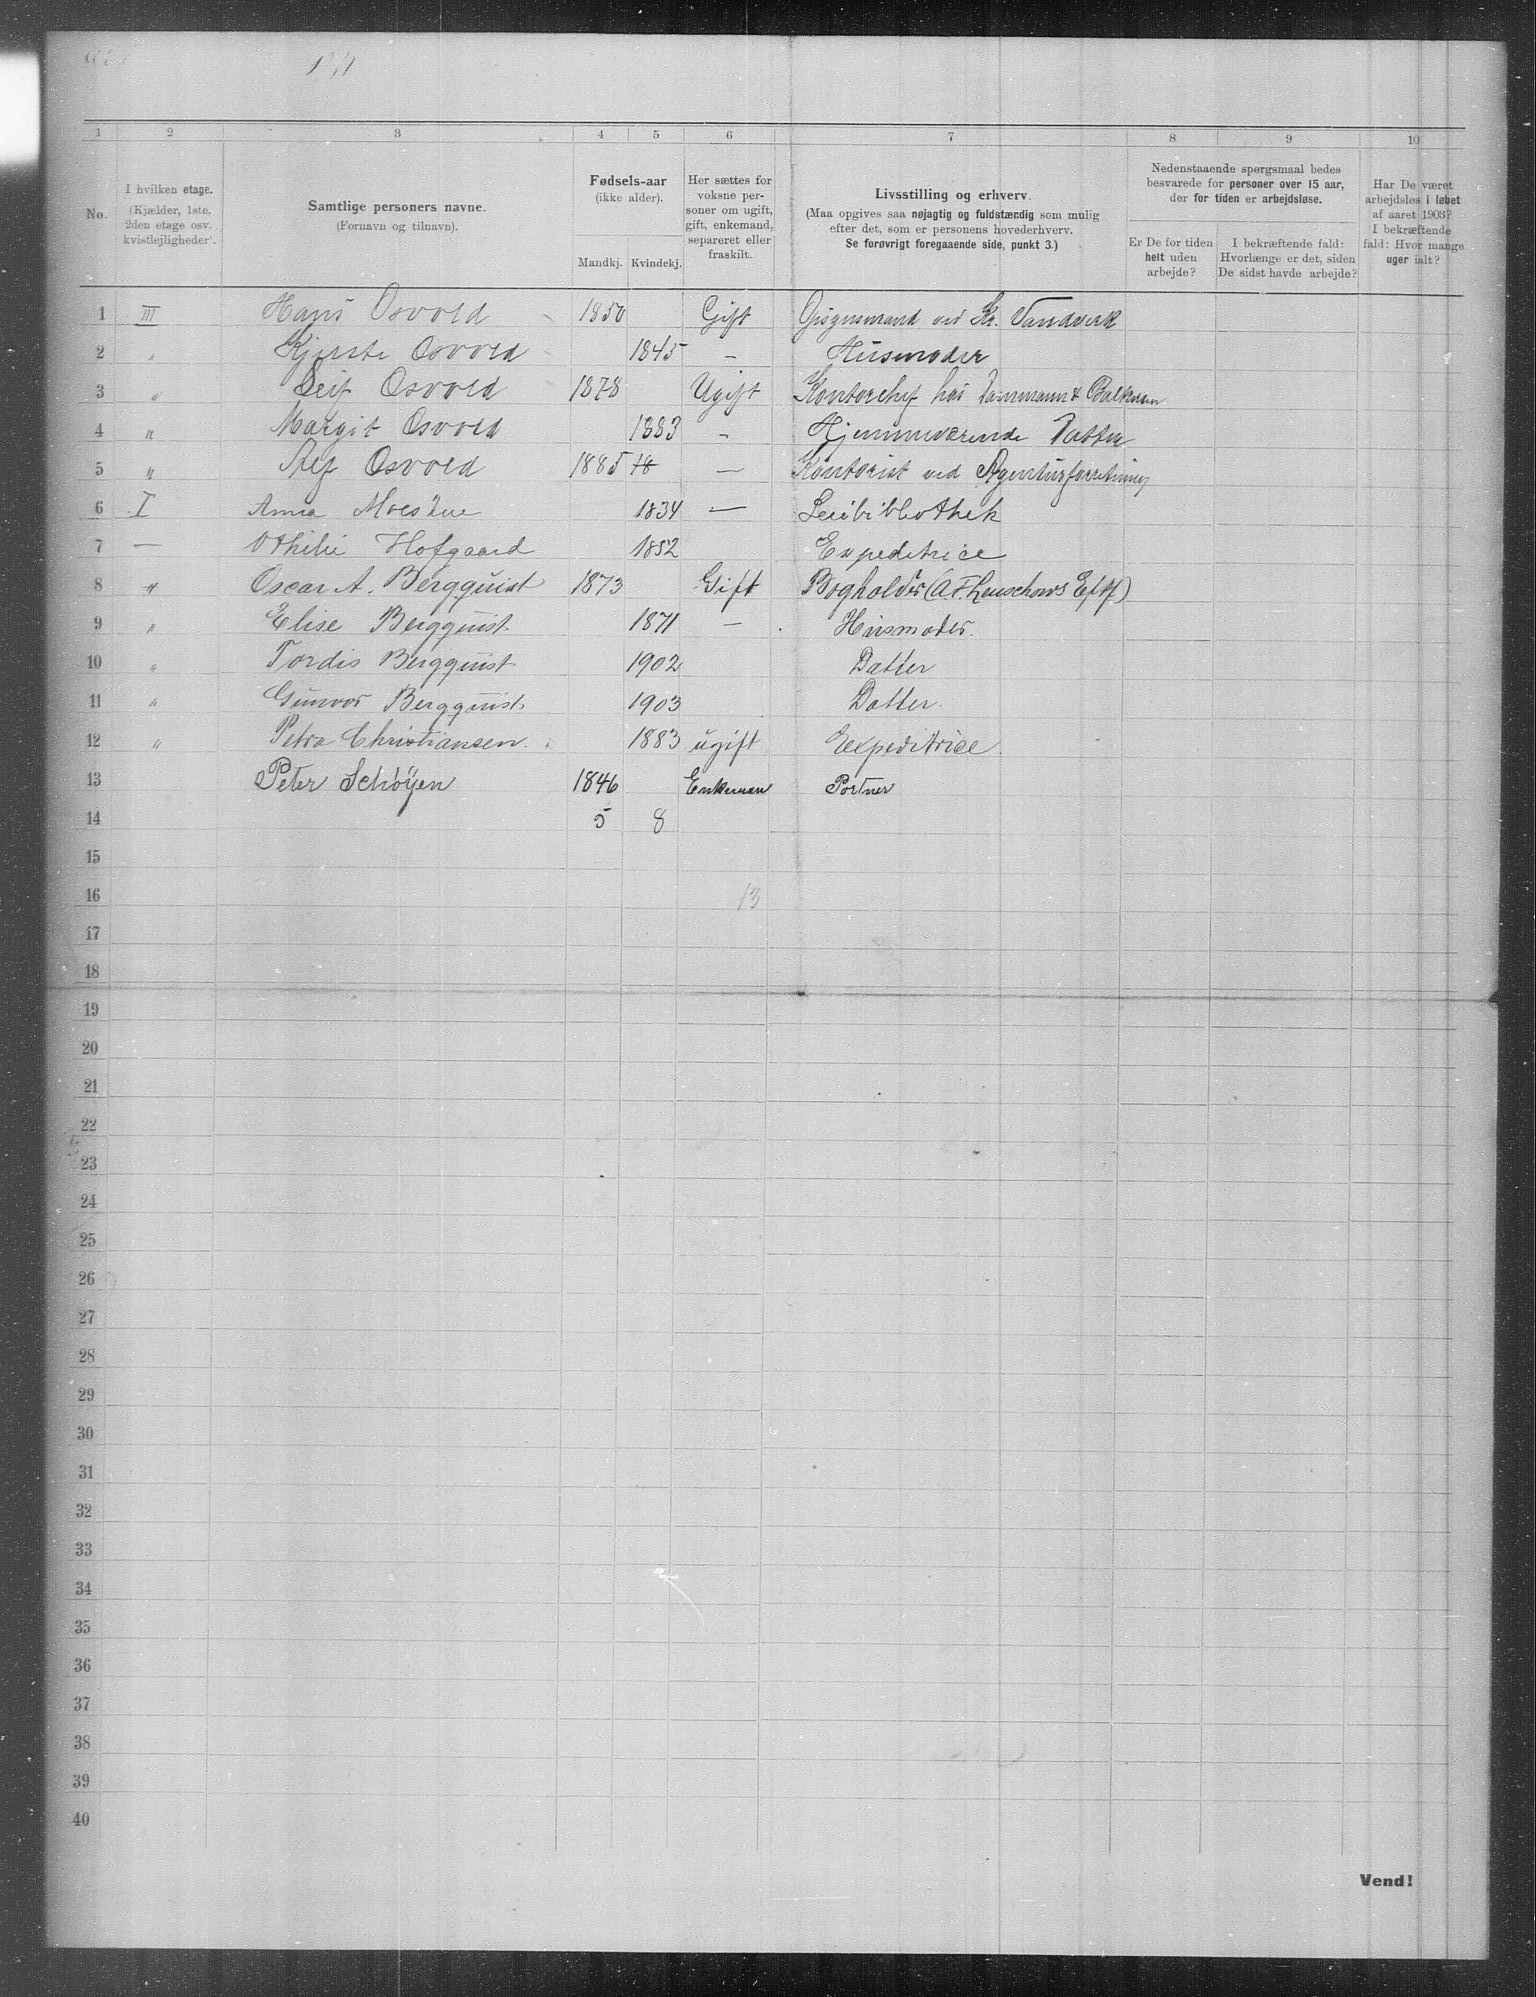 1 2 3 4 5 6 7 8 9 10
No.
I hvilken etage.
(Kjælder, 1ste,
2den etage osv.
kvistlejligheder).
Samtlige personers navne.
(Fornavn og tilnavn).
Fødsels-aar
(ikke alder).
Mandkj. Kvindekj.
Her sættes for
voksne per-
soner om ugift,
gift, enkemand,
separeret eller
fraskilt.
Livsstilling og erhverv.
(Maa opgives saa nøjagtig og fuldstændig som mulig
efter det, som er personens hovederhverv.
Se forøvrigt foregaaende side, punkt 3.)
Nedenstaaende spørgsmaal bedes
besvarede for personer over 15 aar,
der for tiden er arbejdsløse.
Er De for tiden
helt uden
arbejde?
I bekræftende fald:
Hvorlænge er det, siden
De sidst havde arbejde?
Har De været
arbejdsløs i løbet
af aaret 1903?
I bekræftende
fald: Hvor mange
uger ialt?
1 III Hans Osvold 1850 Gift Opsynsmand ved Kr. Vandverk
2 " Kjerste Osvold 1845 — Husmoder
3 " Leif Osvold 1878 Ugift Kontorchef hos
4 " Margit Osvold 1883 — Hjemmeværende Datter
5 " Alf Osvold 1885 18 — Kontorist ved Agenturforretning
6 I Anna 1834 — Leiebibliothek
7 — Othilie Hofgaard 1852 Expeditrice
8 " Oscar A. Bergquist 1873 Gift Bogholder (A F. Leuschows Eftf)
9 " Elise Bergquist. 1871 — Husmoder.
10 " Tordis Bergquist 1902 Datter
11 " Gunvor Bergquist. 1903 Datter.
12 " Petra Christiansen. 1883 ugift Expeditrice.
13 Peter Schøyen 1846 Enkeman Portner
14 5 8
15
16 13
17
18
19
20
21
22
23
24
25
26
27
28
29
30
31
32
33
34
35
36
37
38
39
40
Vend!